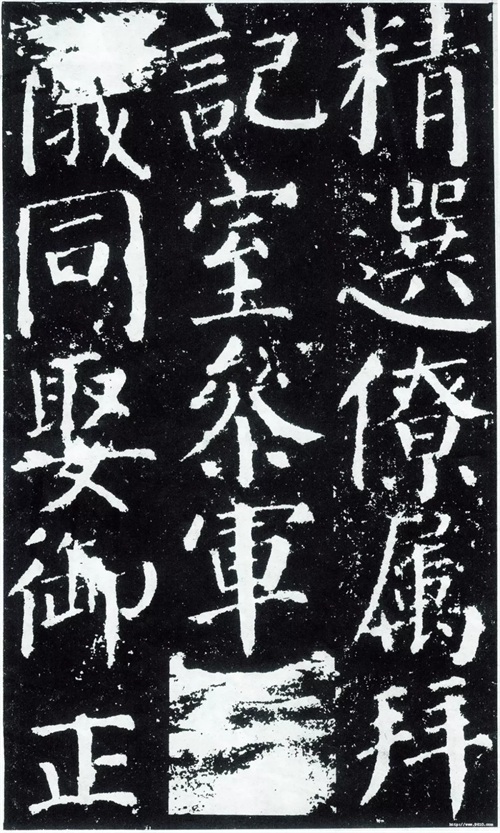 精選僚屬拜
記室參軍
儀同娶御正
http://www.9610.com